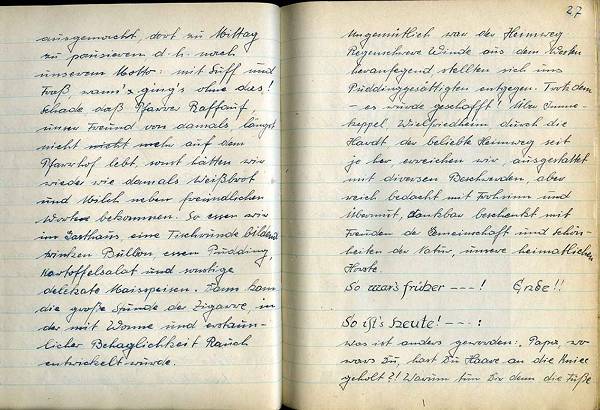 ausgemacht, dort zu Mittag
zu pausieren d. h. nach
unserem Motto: mit Suff und
Fraß, wann's ging's ohne dies!
Schade daß Pfarrer Raffauf,
unser Freund von damals, längst
nicht mehr auf dem
Pfarrhof lebt, sonst hätten wir
wieder wie damals Weißbrot
und Milch neben freundlichen
Worten bekommen. So essen wir
im Gasthaus, eine Tischrunde bildend
trinken Bullon, essen Pudding,
Kartoffelsalat und sonstige
delikate Maispeisen. Dann kam
die große Stunde der Zigarre, in
der mit Wonne und erstaun-
licher Behaglichkeit Rauch
entwickelt wurde.
27
Ungemütlich war der Heimweg
Regenschwere Winde aus dem Westen
heranfegend, stellten sich uns
Puddinggesättigten entgegen. Trotzdem
- es wurde geschafft! Über Imme-
keppel, Wielfriedheim durch die
Hardt der beliebte Heimweg seit
je her, erreichen wir, ausgestattet
mit diversen Beschwerden, aber
reich bedacht mit Frohsinn und
Übermut, dankbar beschenkt mit
Freuden der Gemeinschaft und Schön-
heiten der Natur, unsere heimatlichen
Horste.
So war's früher ---! Ende!!
So ist's heute! ---:
was ist anders geworden: „Papa, wo
warst Du, hast Du Haare an die Kniee
geholt?! Warum tun Dir denn die Füße